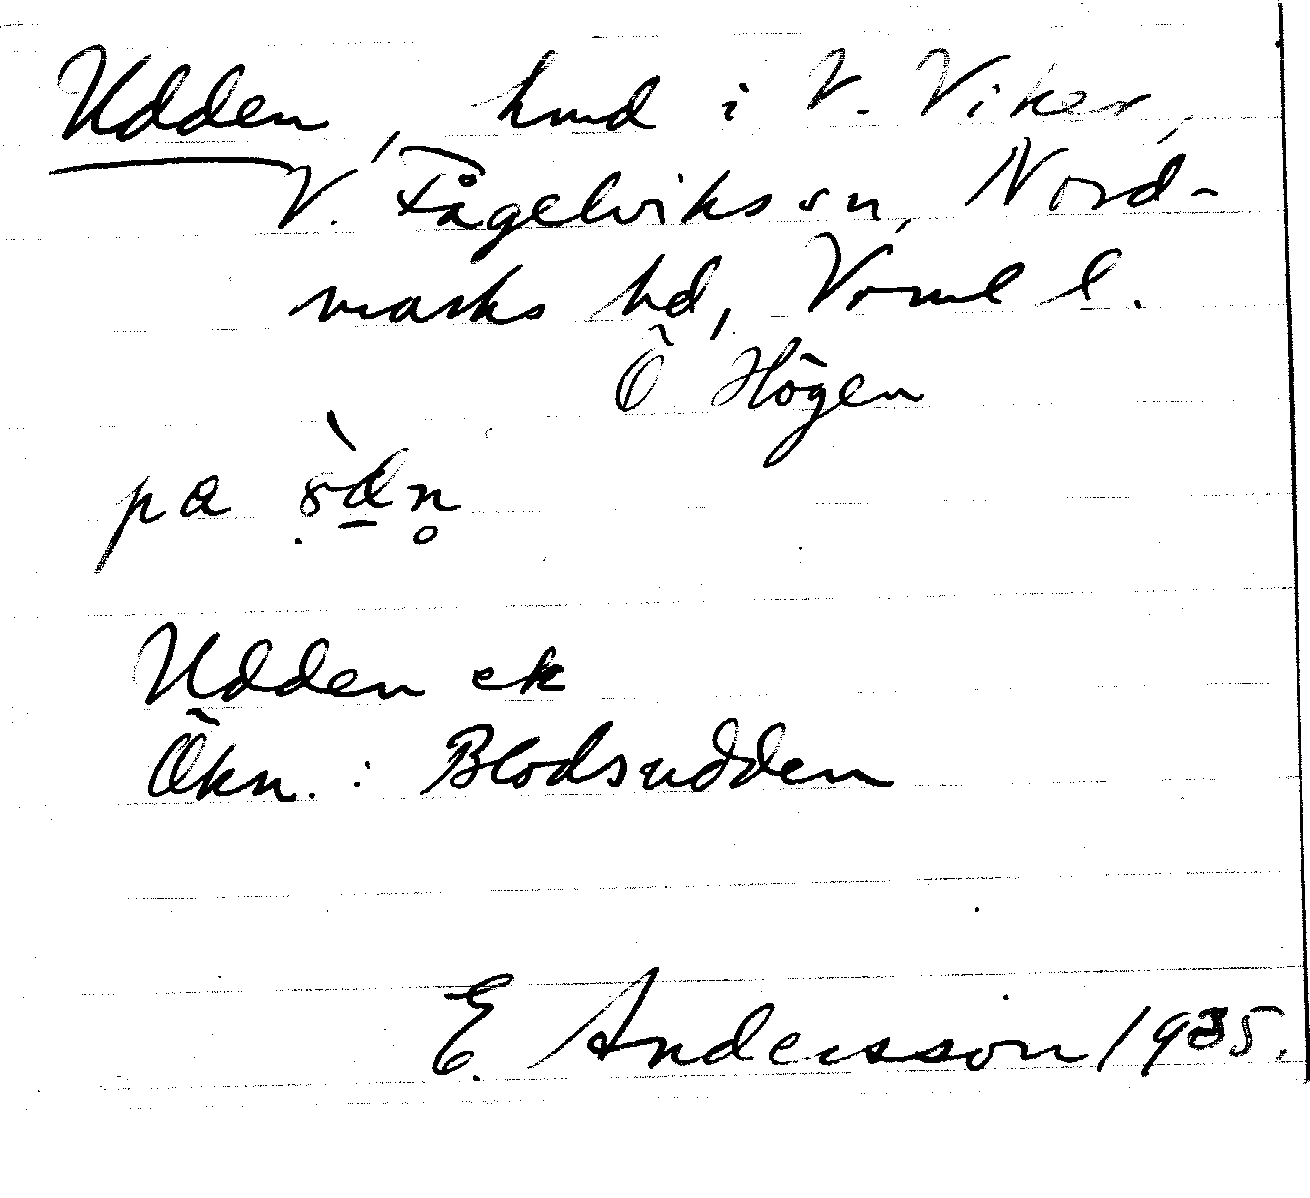 Udden, hmd i V. Viker,
V. Fågelviks sn, Nord-
marks hd, Vrml l.
Ö Högen
pa
Udden ek
Ökn.: Blodsudden
E. Andersson 1935.